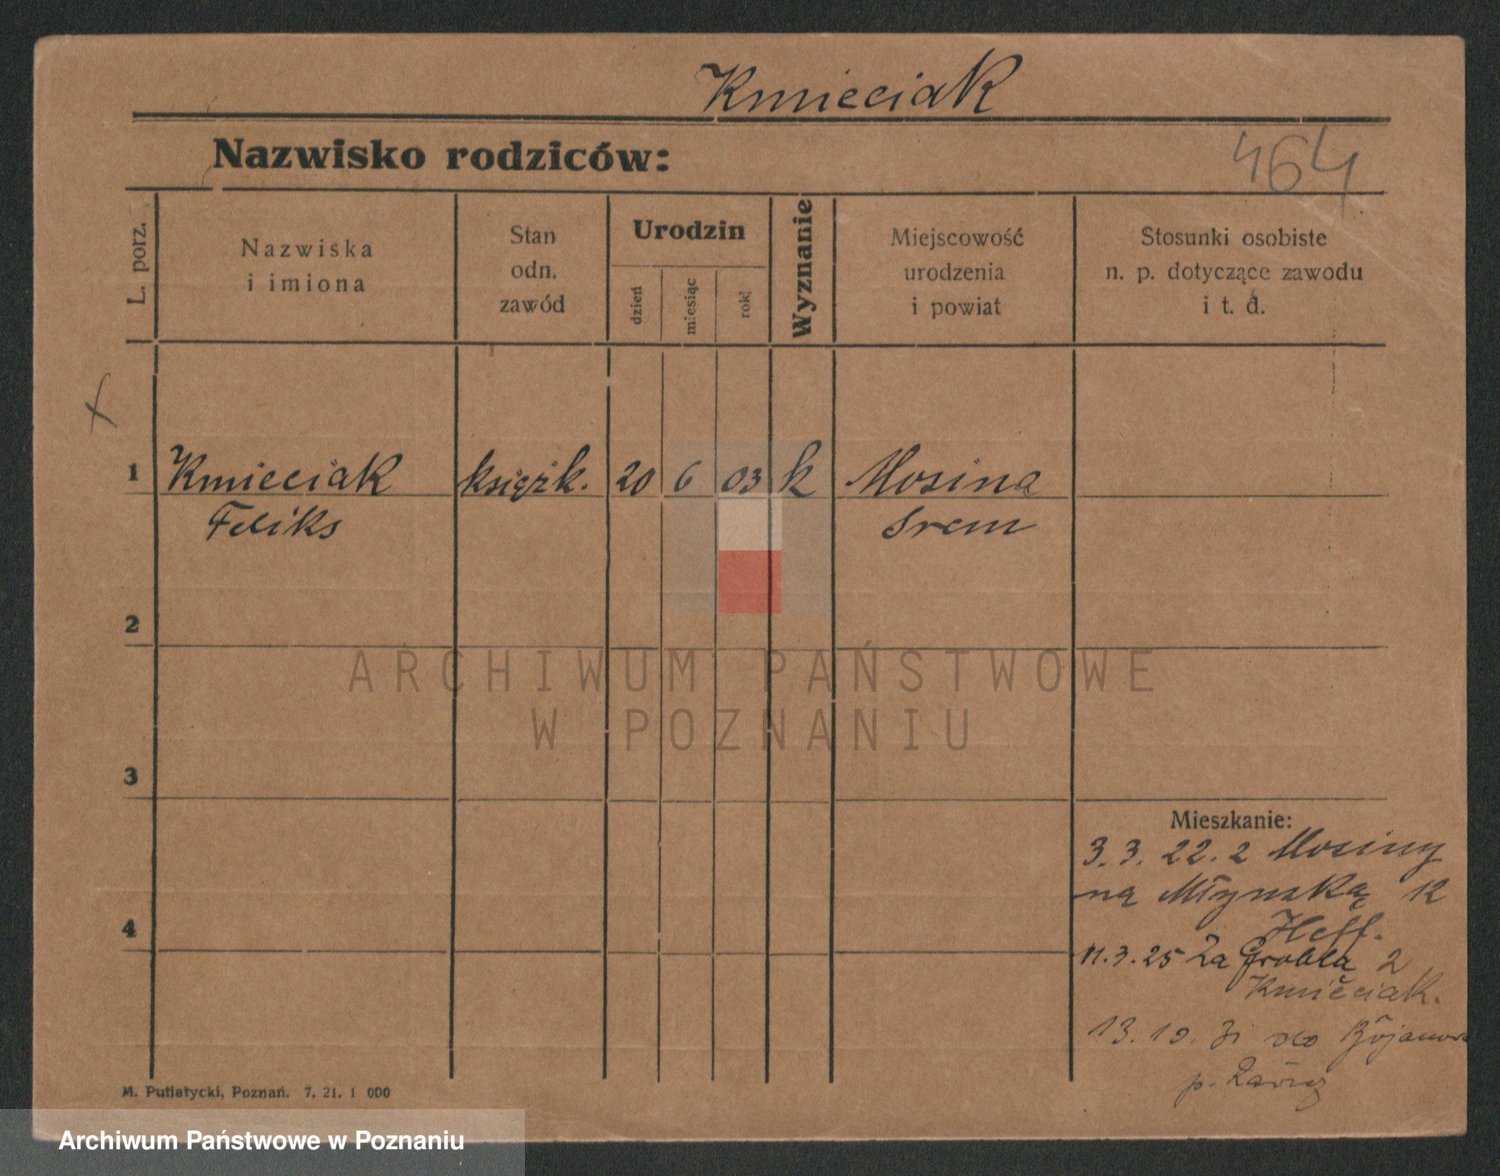 Kmieciak
Nazwisko rodziców:
464
L. porz.
Nazwiska
i imiona
Stan
odn.
zawód
Urodzin
dzień
miesiąc
rok
Wyznanie
Miejscowość
urodzenia
i powiat
Stosunki osobiste
n. p. dotyczące zawodu
i t. d.
1 Kmieciak książk. 20 6 03 k Mosina
Feliks Srem
2
3
4
Mieszkanie:
3.3.22. z Mosiny
na Młynską 12
Heff.
11.3.25 Za Grobla 2
Kmieciak.
13.10.31 do
p.
M. Putiatycki, Poznań. 7. 21. 1 000
ARCHIWUM PAŃSTWOWE
W POZNANIU
Archiwum Państwowe w Poznaniu